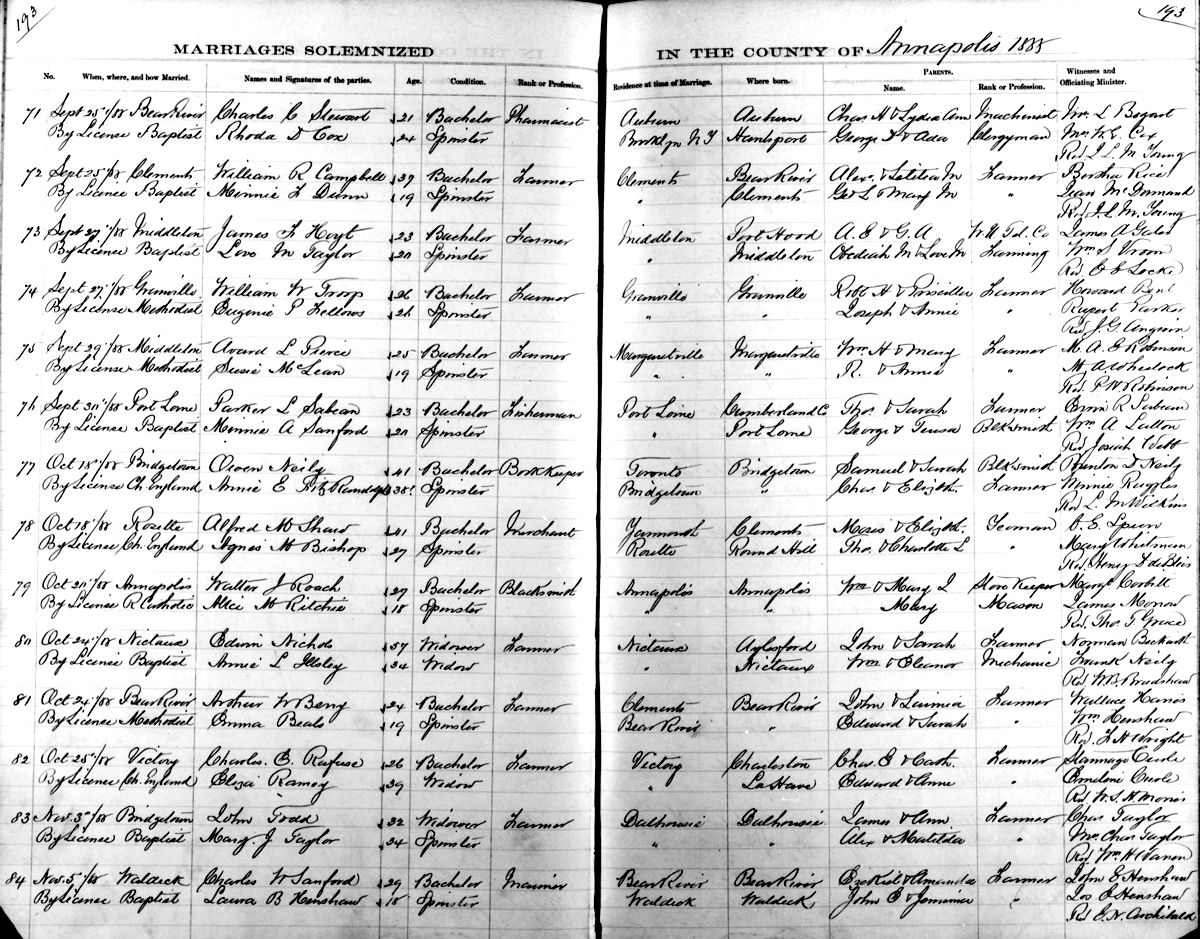 193
193
MARRIAGES SOLEMNIZED IN THE COUNTY OF Annapolis 1888
No. When, where, and how Married. Names and Signatures of the parties. Age. Condition. Rank or Profession. Residence at time of Marriage. Where born. PARENTS. Name. Rank or Profession. Witnesses and Officiating Minister.
71 Sept 25"/88 Bear River Charles C Stewart 21 Bachelor Pharmacist Auburn Auburn Chas H & Lydia Ann Machinist Wm L Bogart
By License Baptist Rhoda D Cox 24 Spinster Brooklyn N Y Hantsport George D & Ada Clergyman Mrs W C Cox
Rev J L M Young
72 Sept 25"/88 Clements William R Campbell 39 Bachelor Farmer Clements Bear River Alex. & Letitia M Farmer Bertha Rice
By License Baptist Minnie F Dunn 19 Spinster " Clements Geo L & Mary M " Jean McDormand
Rev J. L. M. Young
73 Sept 27"/88 Middleton James F Hoyt 23 Bachelor Farmer Middleton Port Hood A. E & G. A W. U Tel. Co James A Gates
By License Baptist Love M Taylor 20 Spinster " Middleton Obediah M & Love M Farming Wm S Vroom
Rev E E Locke
74 Sept 27"/88 Granville William W Troop 26 Bachelor Farmer Granville Granville Robt H & Priscilla Farmer Howard Bent
By License Methodist Eugenie P Fellows 26 Spinster " " Joseph & Annie " Rupert Parker
Rev J. G. Angwin
75 Sept 29"/88 Middleton Avard L Pierce 25 Bachelor Farmer Margaretville Margaretville Wm H & Mary Farmer M. A. E Robinson
By License Methodist Susie McLean 19 Spinster " " R. & Annie " M A Wheelock
Rev P W Robinson
76 Sept 30"/88 Port Lorne Parker L Sabean 23 Bachelor Fisherman Port Lorne Cumberland C Thos & Sarah Farmer R Sabean
By License Baptist Minnie A Sanford 20 Spinster " Port Lorne George & Teresa Blksmith Wm A Lutton
Rev Josiah Webb
77 Oct 18"/88 Bridgetown Owen Neily 41 Bachelor Book Keeper Toronto Bridgetown Samuel & Sarah Blksmith Brenton D Neily
By License Ch. England Annie E FitzRandolph 38 Spinster Bridgetown " Chas & Elizth. Farmer Winnie Ruggles
Rev L. M. Wilkins
78 Oct 18"/88 Rosette Alfred M Shaw 41 Bachelor Merchant Yarmouth Clements & Elizth. Yeoman C. E. Spurr
By License Ch. England Agnes M Bishop 27 Spinster Rosette Round Hill Thos & Charlotte L " Mary Whitman
Rev Henry D deBlois
79 Oct 20"/88 Annapolis Walter J Roach 27 Bachelor Blacksmith Annapolis Annapolis Wm & Mary J Store Keeper Mary Corbitt
By License R Catholic M Ritchie 18 Spinster " Mary Mason James Morrow
Rev. Thos J Grace
80 Oct 24"/88 Nictaux Edwin Nichols 57 Widower Farmer Nictaux Aylesford John & Sarah Farmer Norman Beckwith
By License Baptist Annie L Illsley 34 Widow " Nictaux Wm & Eleanor Mechanic Frank Neily
Rev W. B. Bradshaw
81 Oct 24"/88 Bear River Arthur W Berry 24 Bachelor Farmer Clements Bear River John & Farmer Wallace Harris
By License Methodist Emma Beals 19 Spinster Bear River " Edward & Sarah " Wm Henshaw
Rev. F H Wright
82 Oct 25"/88 Victory Charles. E. Rafuse 26 Bachelor Farmer Victory Charleston Chas. E & Cath. Farmer
By License Ch. England Eliza Ramey 39 Widow " LaHave Edward & Anne " Emeline
Rev. W. S. H. Morris
83 Nov. 3"/88 Bridgetown John Todd 32 Widower Farmer Dalhousie Dalhousie James & Ann Farmer Chas Taylor
By License Baptist Mary. J Taylor 24 Spinster " " Alex & Matilda " Mrs Chas Taylor
Rev. Wm H Warren
84 Nov. 5"/88 Waldeck Charles W Sanford 29 Bachelor Mariner Bear River Bear River Ezekiel & Amanda Farmer John E Henshaw
By License Baptist Laura B Henshaw 18 Spinster Waldeck Waldeck John E & Jemimia " E Henshaw
Rev E. N. Archibald